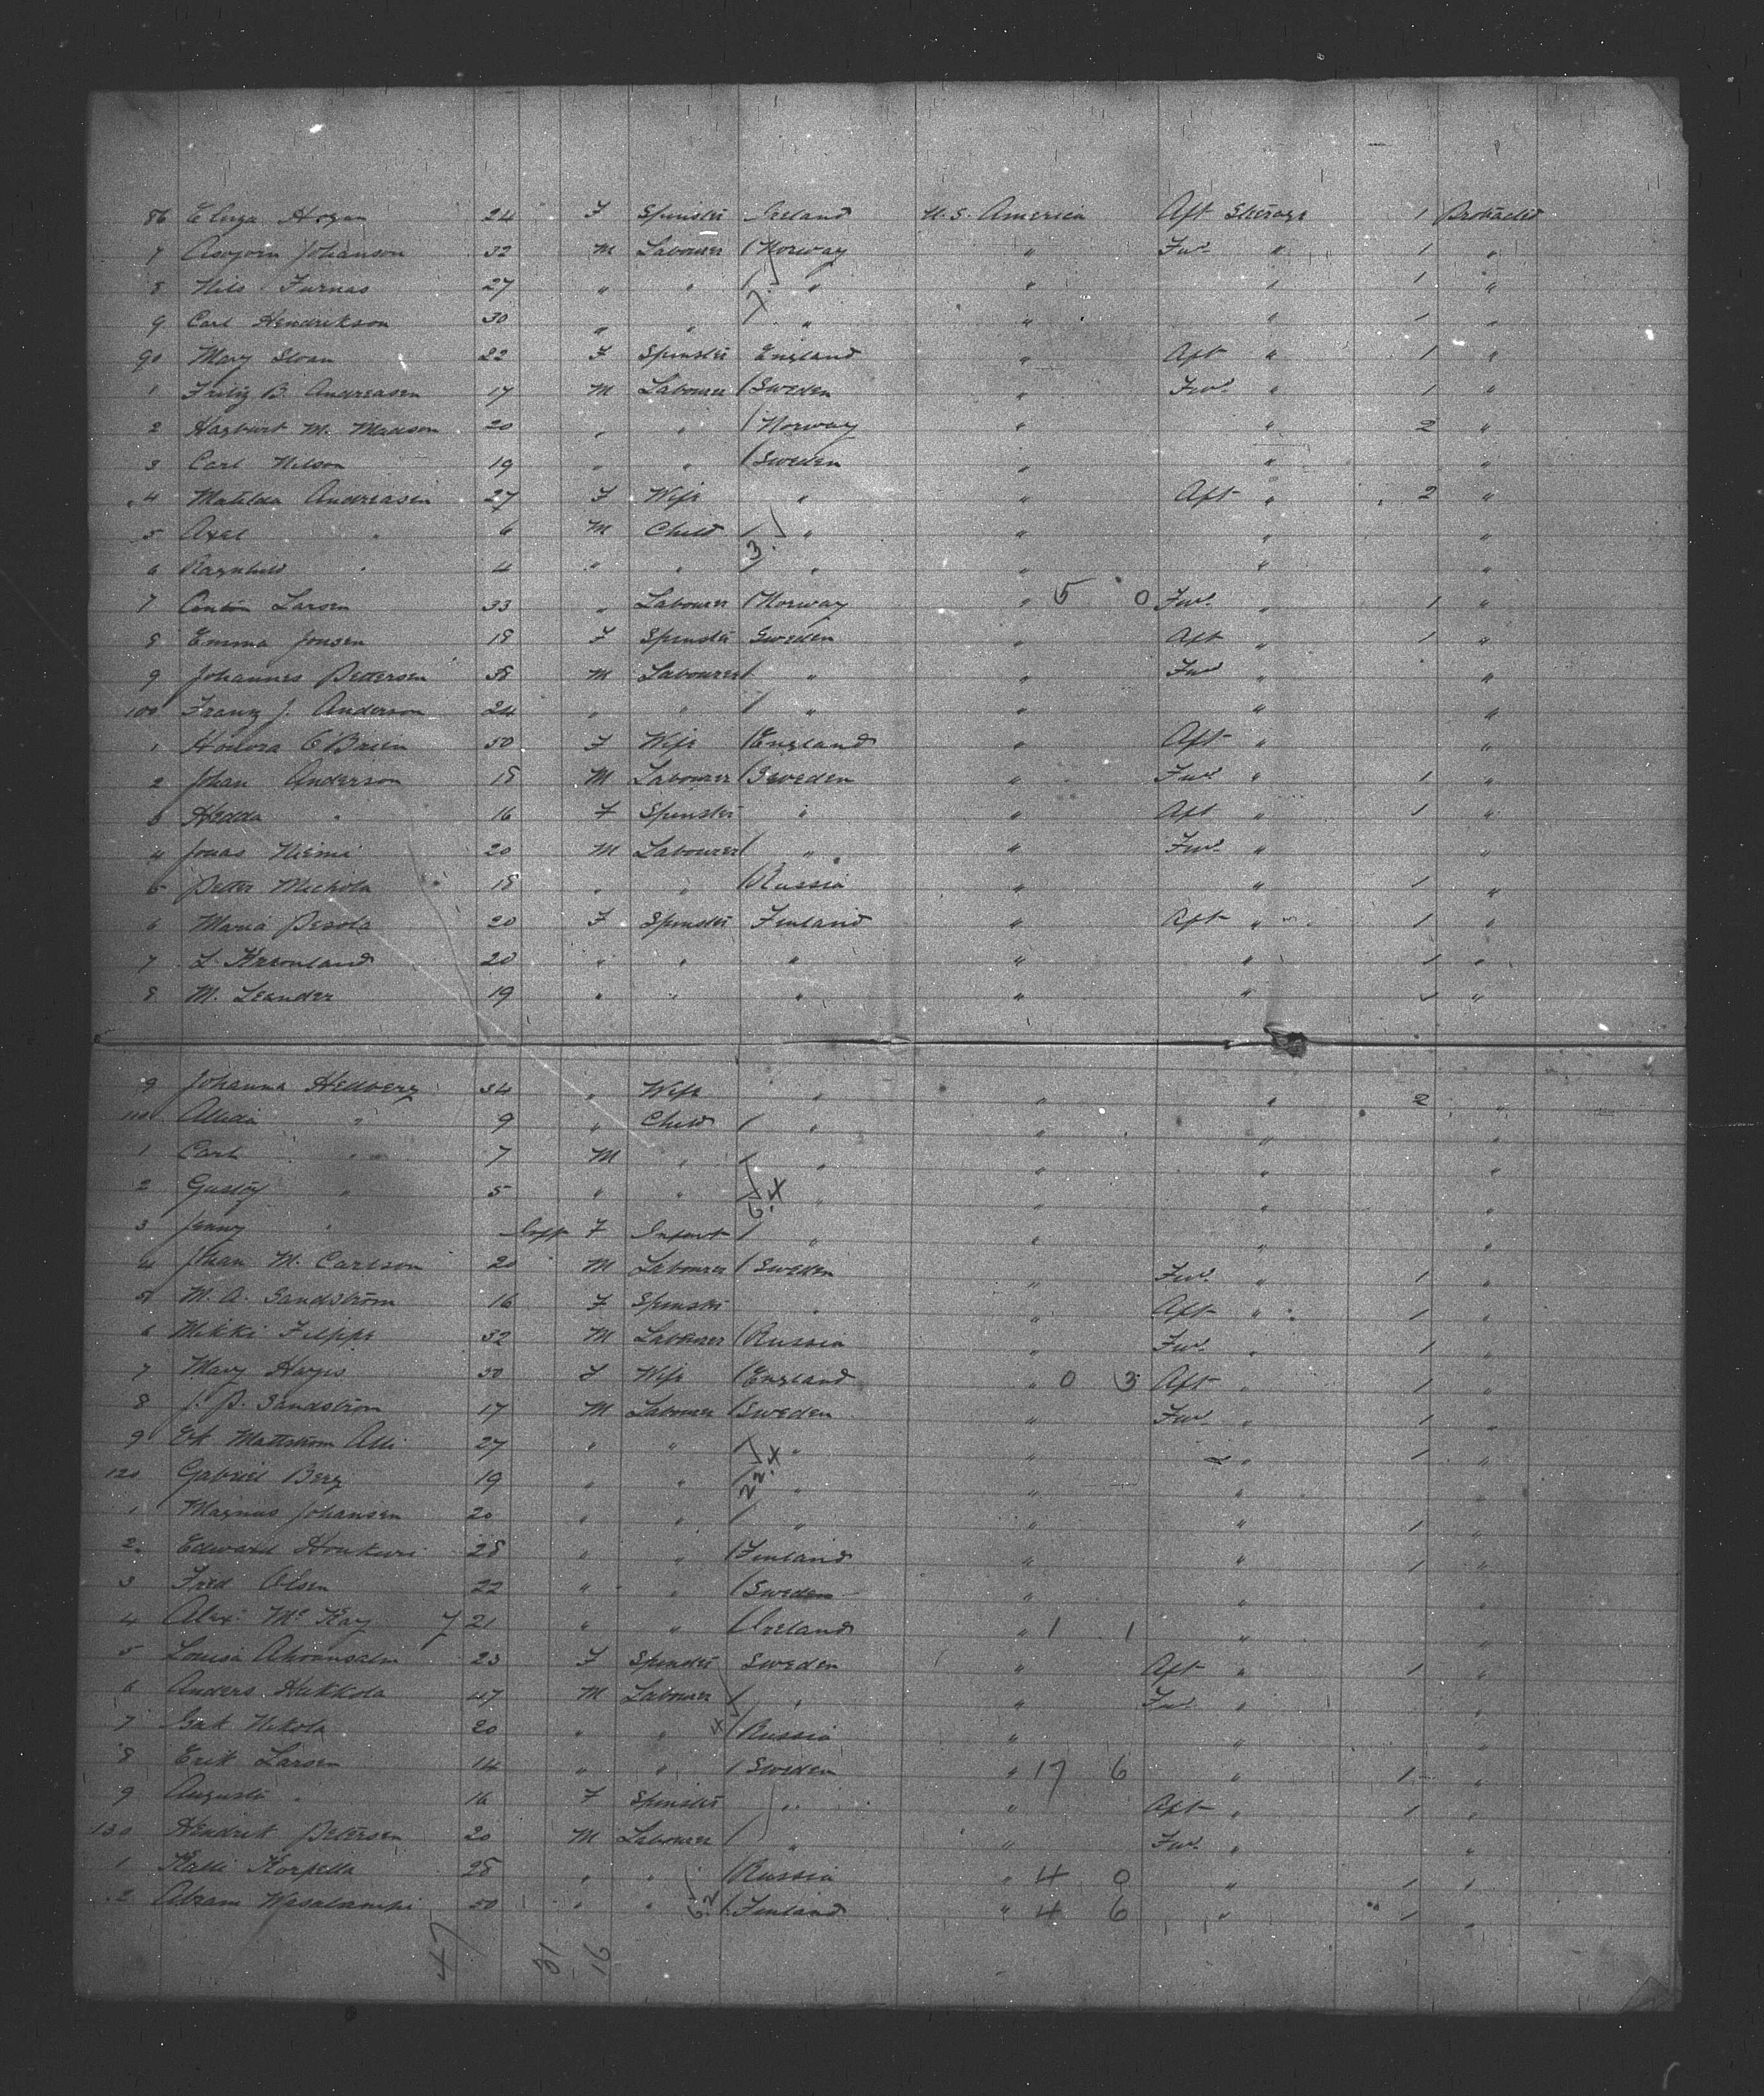 86 Eliza Hogan 24 F Spinster Ireland U.S. America Aft Steerage 1 Protracted
7 Asbjorn Johanson 32 M Labourer / Norway " Fwd " 1 "
8 Nils Furnas 27 " " / " " " 1 "
9 Carl Hendrikson 30 " " / " " " 1 "
90 Mary Sloan 22 F Spinster England " Aft " 1 "
1 Fritz B. Andreasen 17 M Labourer / Sweden " Fwd " 1 "
2 Hagbart M. Madson 20 " " / Norway " " 2 "
3 Carl Nilson 19 " " / Sweden " " "
4 Matilda Andreasen 27 F Wife " " Aft " 2 "
5 Axel " 6 M Child / " " " "
6 Ragnhild " 4 " " / " " " "
7 Larsen 33 " Labourer / Norway " 5 0 Fwd " 1 "
8 Emma Jonsen 18 F Spinster Sweden " Aft " 1 "
9 Johannes Pettersen 38 M Labourer / " " Fwd " "
100 Franz J. Anderson 24 " " / " " " "
1 Honora O'Brien 50 F Wife / England " Aft " "
2 Johan Anderson 18 M Labourer / Sweden " Fwd " 1 "
3 Hedda " 16 F Spinster " " Aft " 1 "
4 Jonas Niemi 20 M Labourer / " " Fwd " "
5 Petter Michola 18 " " / Russia " " 1 "
6 Maria Pesola 20 F Spinster Finland " Aft " 1 "
7 L. 20 " " " " " 1 "
8 M. Leander 19 " " " " " "
9 Johanna Hellberg 34 " Wife " " " 2 "
110 Alida " 9 " Child / " " " "
1 Carl " 7 M " / " " " "
2 Gustaf " 5 " " / " " " "
3 Jenny " Inft F Infant / " " " "
4 Johan M. Carlson 20 M Labourer / Sweden " Fwd " 1 "
5 M. A. Sandstrom 16 F Spinster " " Aft " 1 "
6 Mikki Filippi 32 M Labourer / Russia " Fwd " 1 "
7 Mary Hayes 30 F Wife / England " 0 3 Aft " 1 "
8 J. P. Sandstrom 17 M Labourer / Sweden " Fwd " 1 "
9 Ek Mattstrom Alli 27 " " / " " " 1 "
120 Gabriel Berg 19 " " / " " " "
1 Magnus Johansen 20 " " / " " " 1 "
2 Edward 28 " " / Finland " " 1 "
3 Fred Olsen 22 " " / Sweden " " "
4 Alex: McKay 21 " " / Ireland " 1 1 " "
5 Louisa 23 F Spinster Sweden " Aft " 1 "
6 Anders Hukkola 47 M Labourer / " " Fwd " "
7 Nikola 20 " " / Russia " " "
8 Erik Larsen 14 " " / Sweden " 17 6 " 1 "
9 Augusta " 16 F Spinster " " Aft " 1 "
130 Hendrik Petersen 20 M Labourer / " " Fwd " "
1 Kalli Korpella 28 " " / Russia " 4 0 " 1 "
2 Abram 50 " " / Finland " 4 6 " 1 "
47 31 16